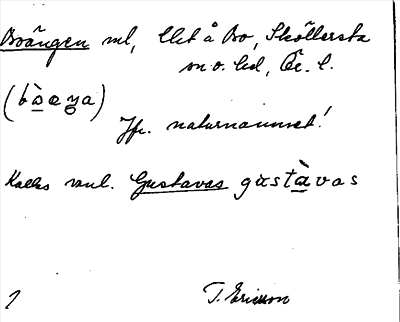 Boängen ml, Utt å Bo, Sköllersta
sn o. hd, Ör. l.
(bòæŋa)
Jfr. naturnamnet!
Kallas vanl. Gustavas gustàvas
T. Ericsson